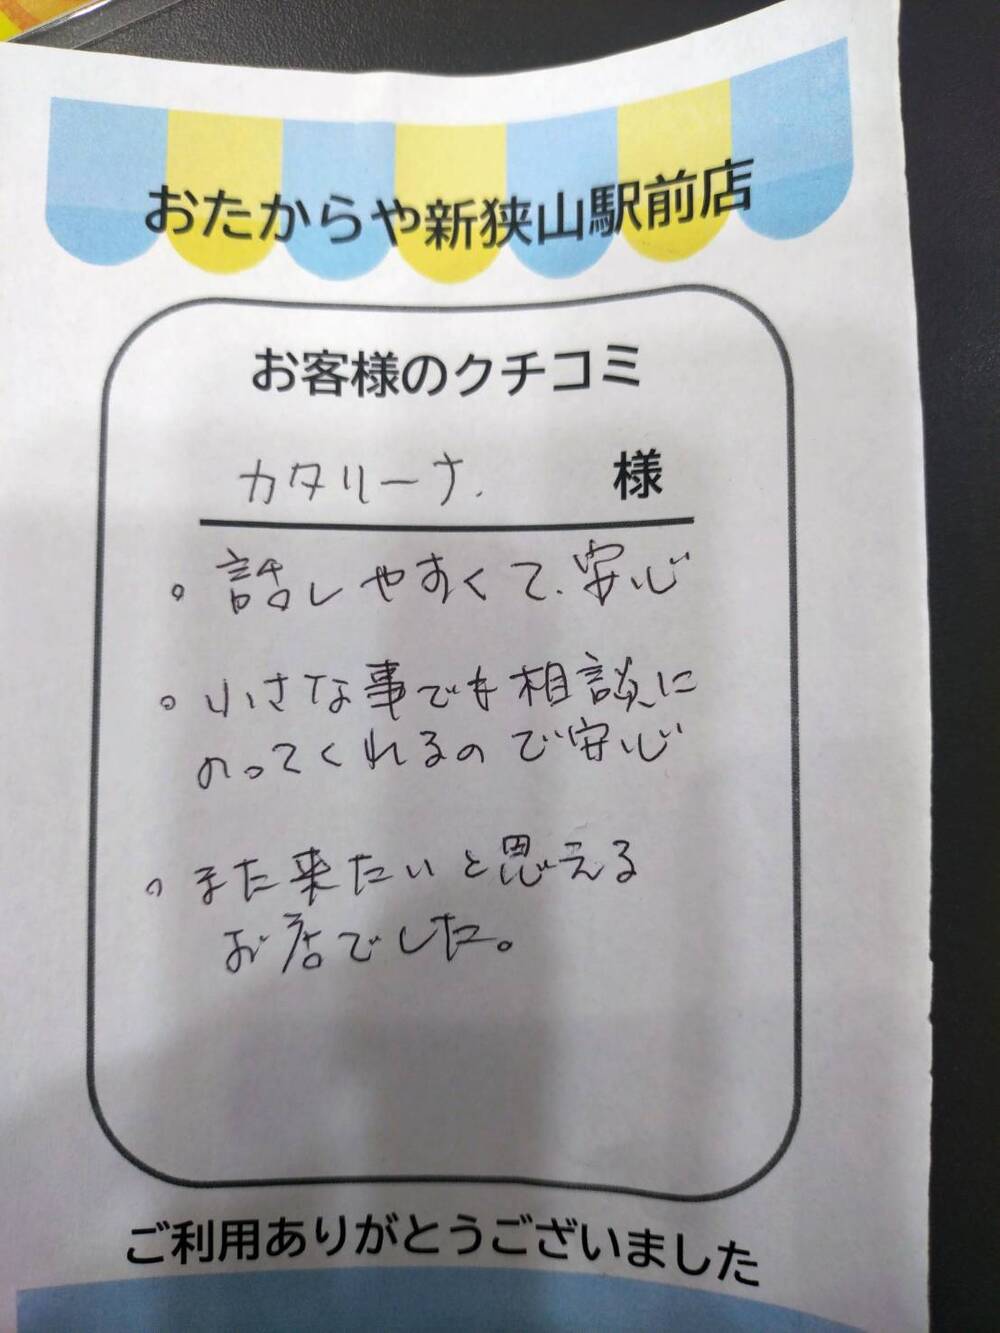 おたからや新狭山駅前店
お客様のクチコミ
カタリーナ. 様
。話しやすくて、安心
。小さな事でも相談に
のってくれるので安心
。また来たいと思える
お店でした。
ご利用ありがとうございました